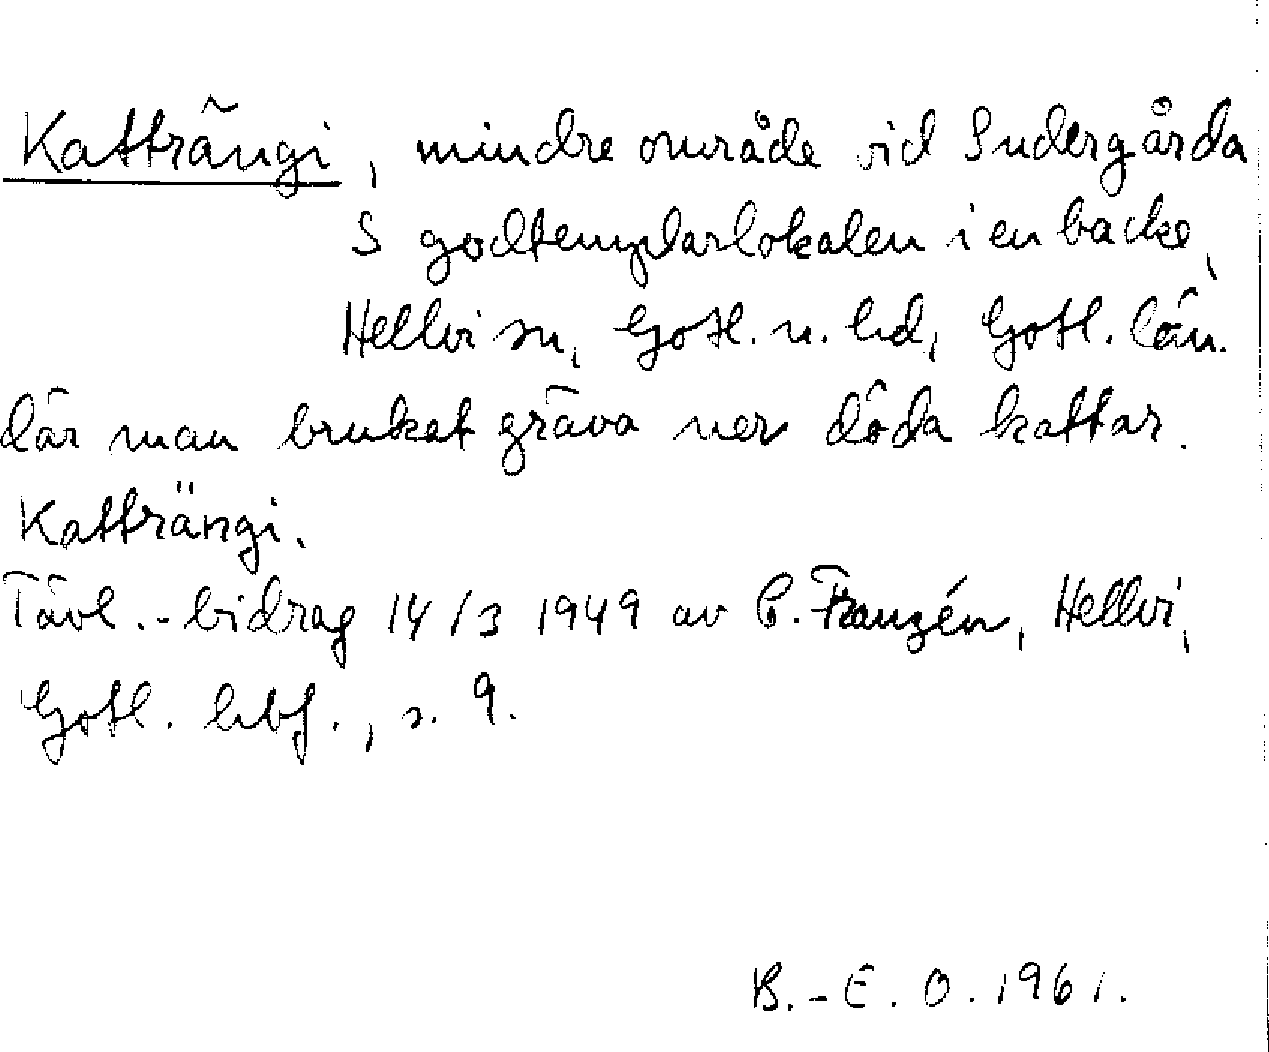 Katträngi, mindre område vid Sudergårda
S godtemplarlokalen i en backe,
Hellvi sn, Gotl. n. hd, Gotl. län.
där man brukat gräva ner döda kattar.
Katträngi.
Tävl.-bidrag 14/3 1949 av P. Franzén, Hellvi,
Gotl. hbf., s. 9.
B.-E. O. 1961.